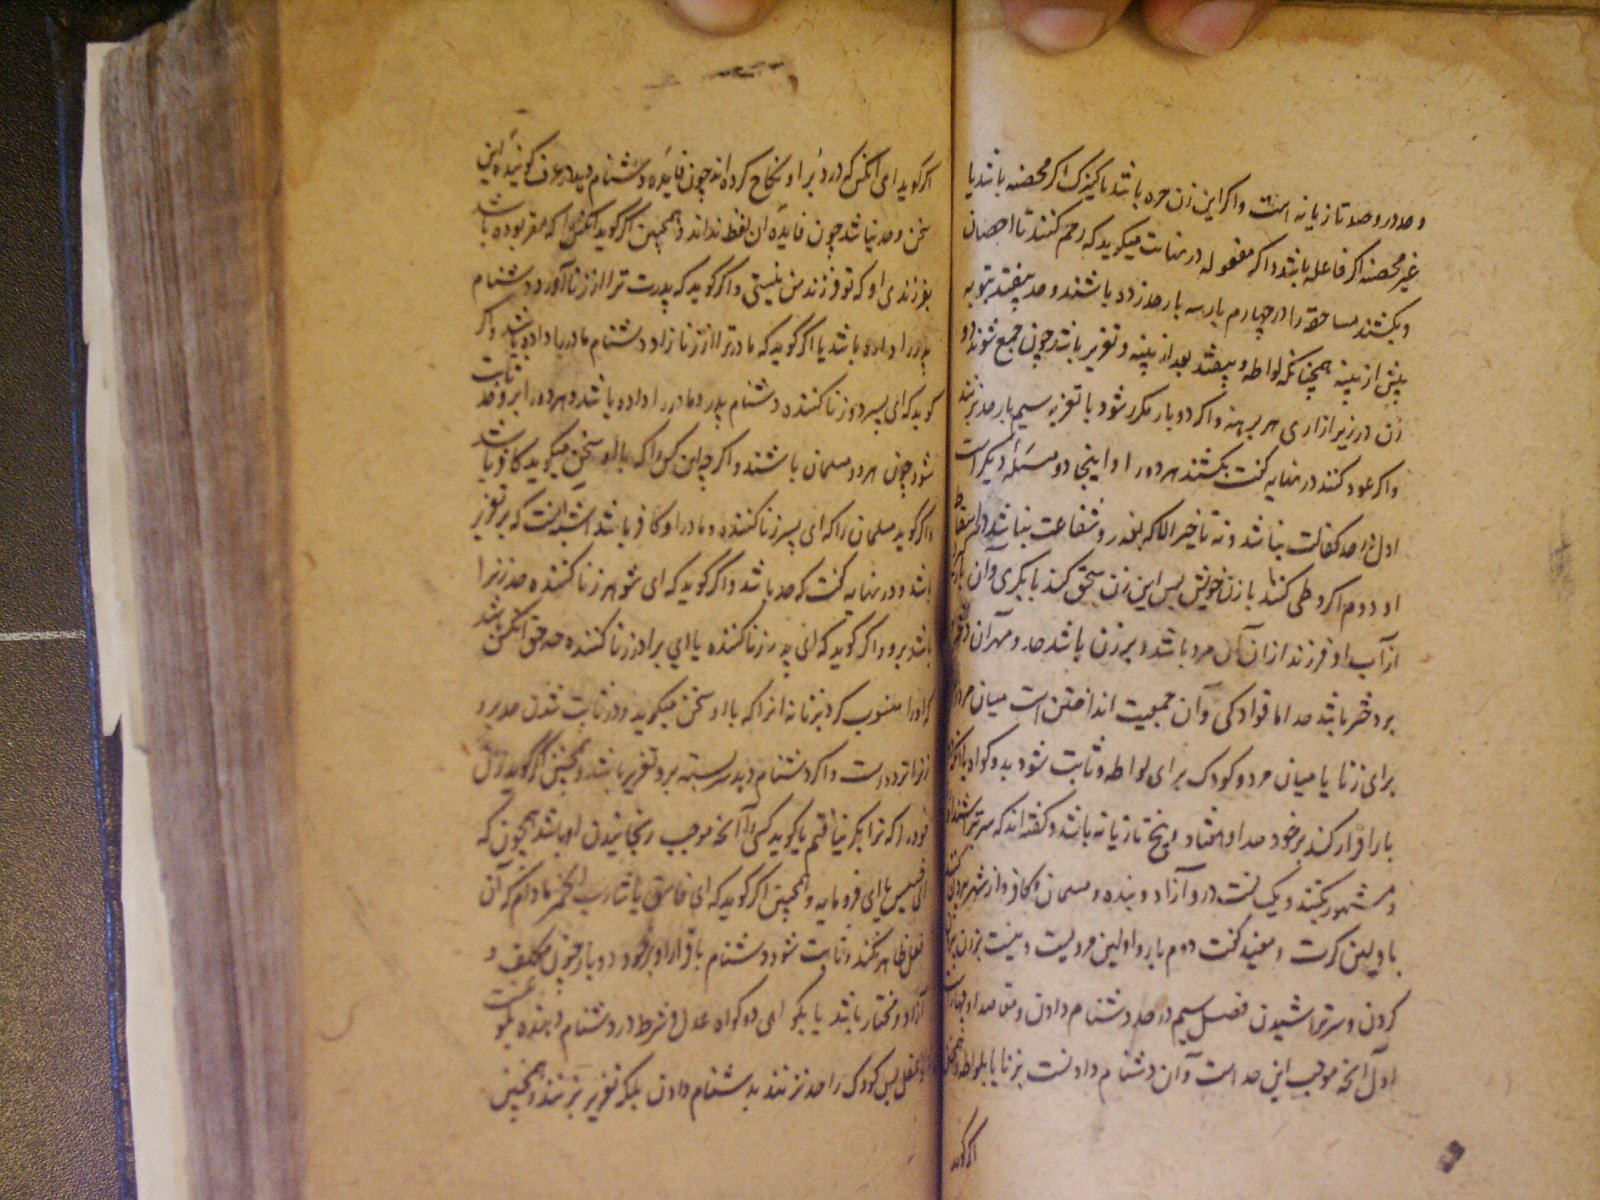 و حد در و صد تازیانه است و اگر این زن حره باشد یا کنیزک اگر محصنه باشد یا
غیر محصنه اگر فاعله باشد و اگر مفعوله در نهایت میگوید که رجم کنند تا احصان
و بکشند مساحقه را در چهارم بار سه بار حد زده باشند و حد بیفتد بتوبه
پیش از بینه همچنانکه لواطه و نیفتد بعد از بینه و تعزیر باشد چون جمع شوند دو
زن در زیر ازاری هر برهنه و اگر دو بار مکرر شود با تعزیر سیم بار حد بزنند
و اگر عود کنند در نهایه گفت بکشند هر دو را و اینجا دو مسئله دیگر است
اول در حد کفالت نباشد و نه تاخیر الا که بعذر و شفاعت نباشد در اسقاط
او دوم اگر وطی کند با زن خویش پس این زن سحق کند با بکری و آن
از آب او فرزند از آن آن مرد باشد و بر زن باشد حد و مهر آن دختر
بر دختر باشد حد اما قوادگی و آن جمعیت انداختن است میان مردان
برای زنا یا میان مرد و کودک برای لواطه و ثابت شود بدو گواه یا آنکه
بار اقرار کند بر خود حد او هفتاد و پنج تازیانه باشد و گفته اند که سرتراشند
و مشهور بکنند و یکسانست درو آزاد و بنده و مسلمان و کافر و از شهر بیرون کنند
باولین کرت و مفید گفت دوم بار و اولین مرویست و نیست بر زن بیرون
کردن و سر تراشیدن فصل سیم در حد دشنام دادن و متن صد او چهار است
اول آنچه موجب این حد است و آن دشنام دادنست بزنا یا بلواطه و همچنین
اگر گوید
اگر گوید ای آنکس که در دبر او نکاح کرده اند چون فایده دشنام دهد در عرف گوینده این
سخن و حد نباشد چون فایده آن لفظ نداند و همچنین اگر گوید آنکس را که مقر بوده باشد
بفرزندی او که تو فرزند من نیستی و اگر گوید که پدرت ترا از زنا آورد دشنام
پدر را داده باشد یا اگر گوید که مادر ترا از زنا زاد دشنام مادر را داده باشد و اگر
گوید که ای پسر دو زنا کننده دشنام پدر و مادر را داده باشد و هر دو را برو حد ثابت
شود چون هر دو مسلمان باشند و اگر چه این کس را که با او سخن میگوید کافر باشد
و اگر گوید مسلمان را که ای پسر زنا کننده و مادر او کافر باشد اشبه آنست که برو تعزیر
باشد و در نهایه گفت که حد باشد و اگر گوید که ای شوهر زنا کننده حد زن را
باشد برو و اگر گوید که ای پدر زنا کننده یا ای برادر زنا کننده حد حق آنکس باشد
که او را منسوب کرد بزنا نه آنرا که با او سخن میگوید و در ثابت شدن حد برو
زنا تردد است و اگر دشنام دهد سربسته برو تعزیر باشد و همچنین اگر گوید زن
خود را که ترا بکر نیافتم یا گوید کسی را آنچه موجب رنجانیدن او باشد همچون که
ای خسیس یا ای فرومایه و همچنین اگر گوید که ای فاسق یا شارب الخمر مادام که آن
فعل ظاهر نکند و ثابت شود دشنام باقرار او بر خود دو بار چون مکلف و
آزاد و مختار باشد یا بگواهی دو گواه عدل و شرط در دشنام دهنده بلوغست
و عقل پس کودک را حد نزنند بدشنام دادن بلکه تعزیر بزنند و همچنین